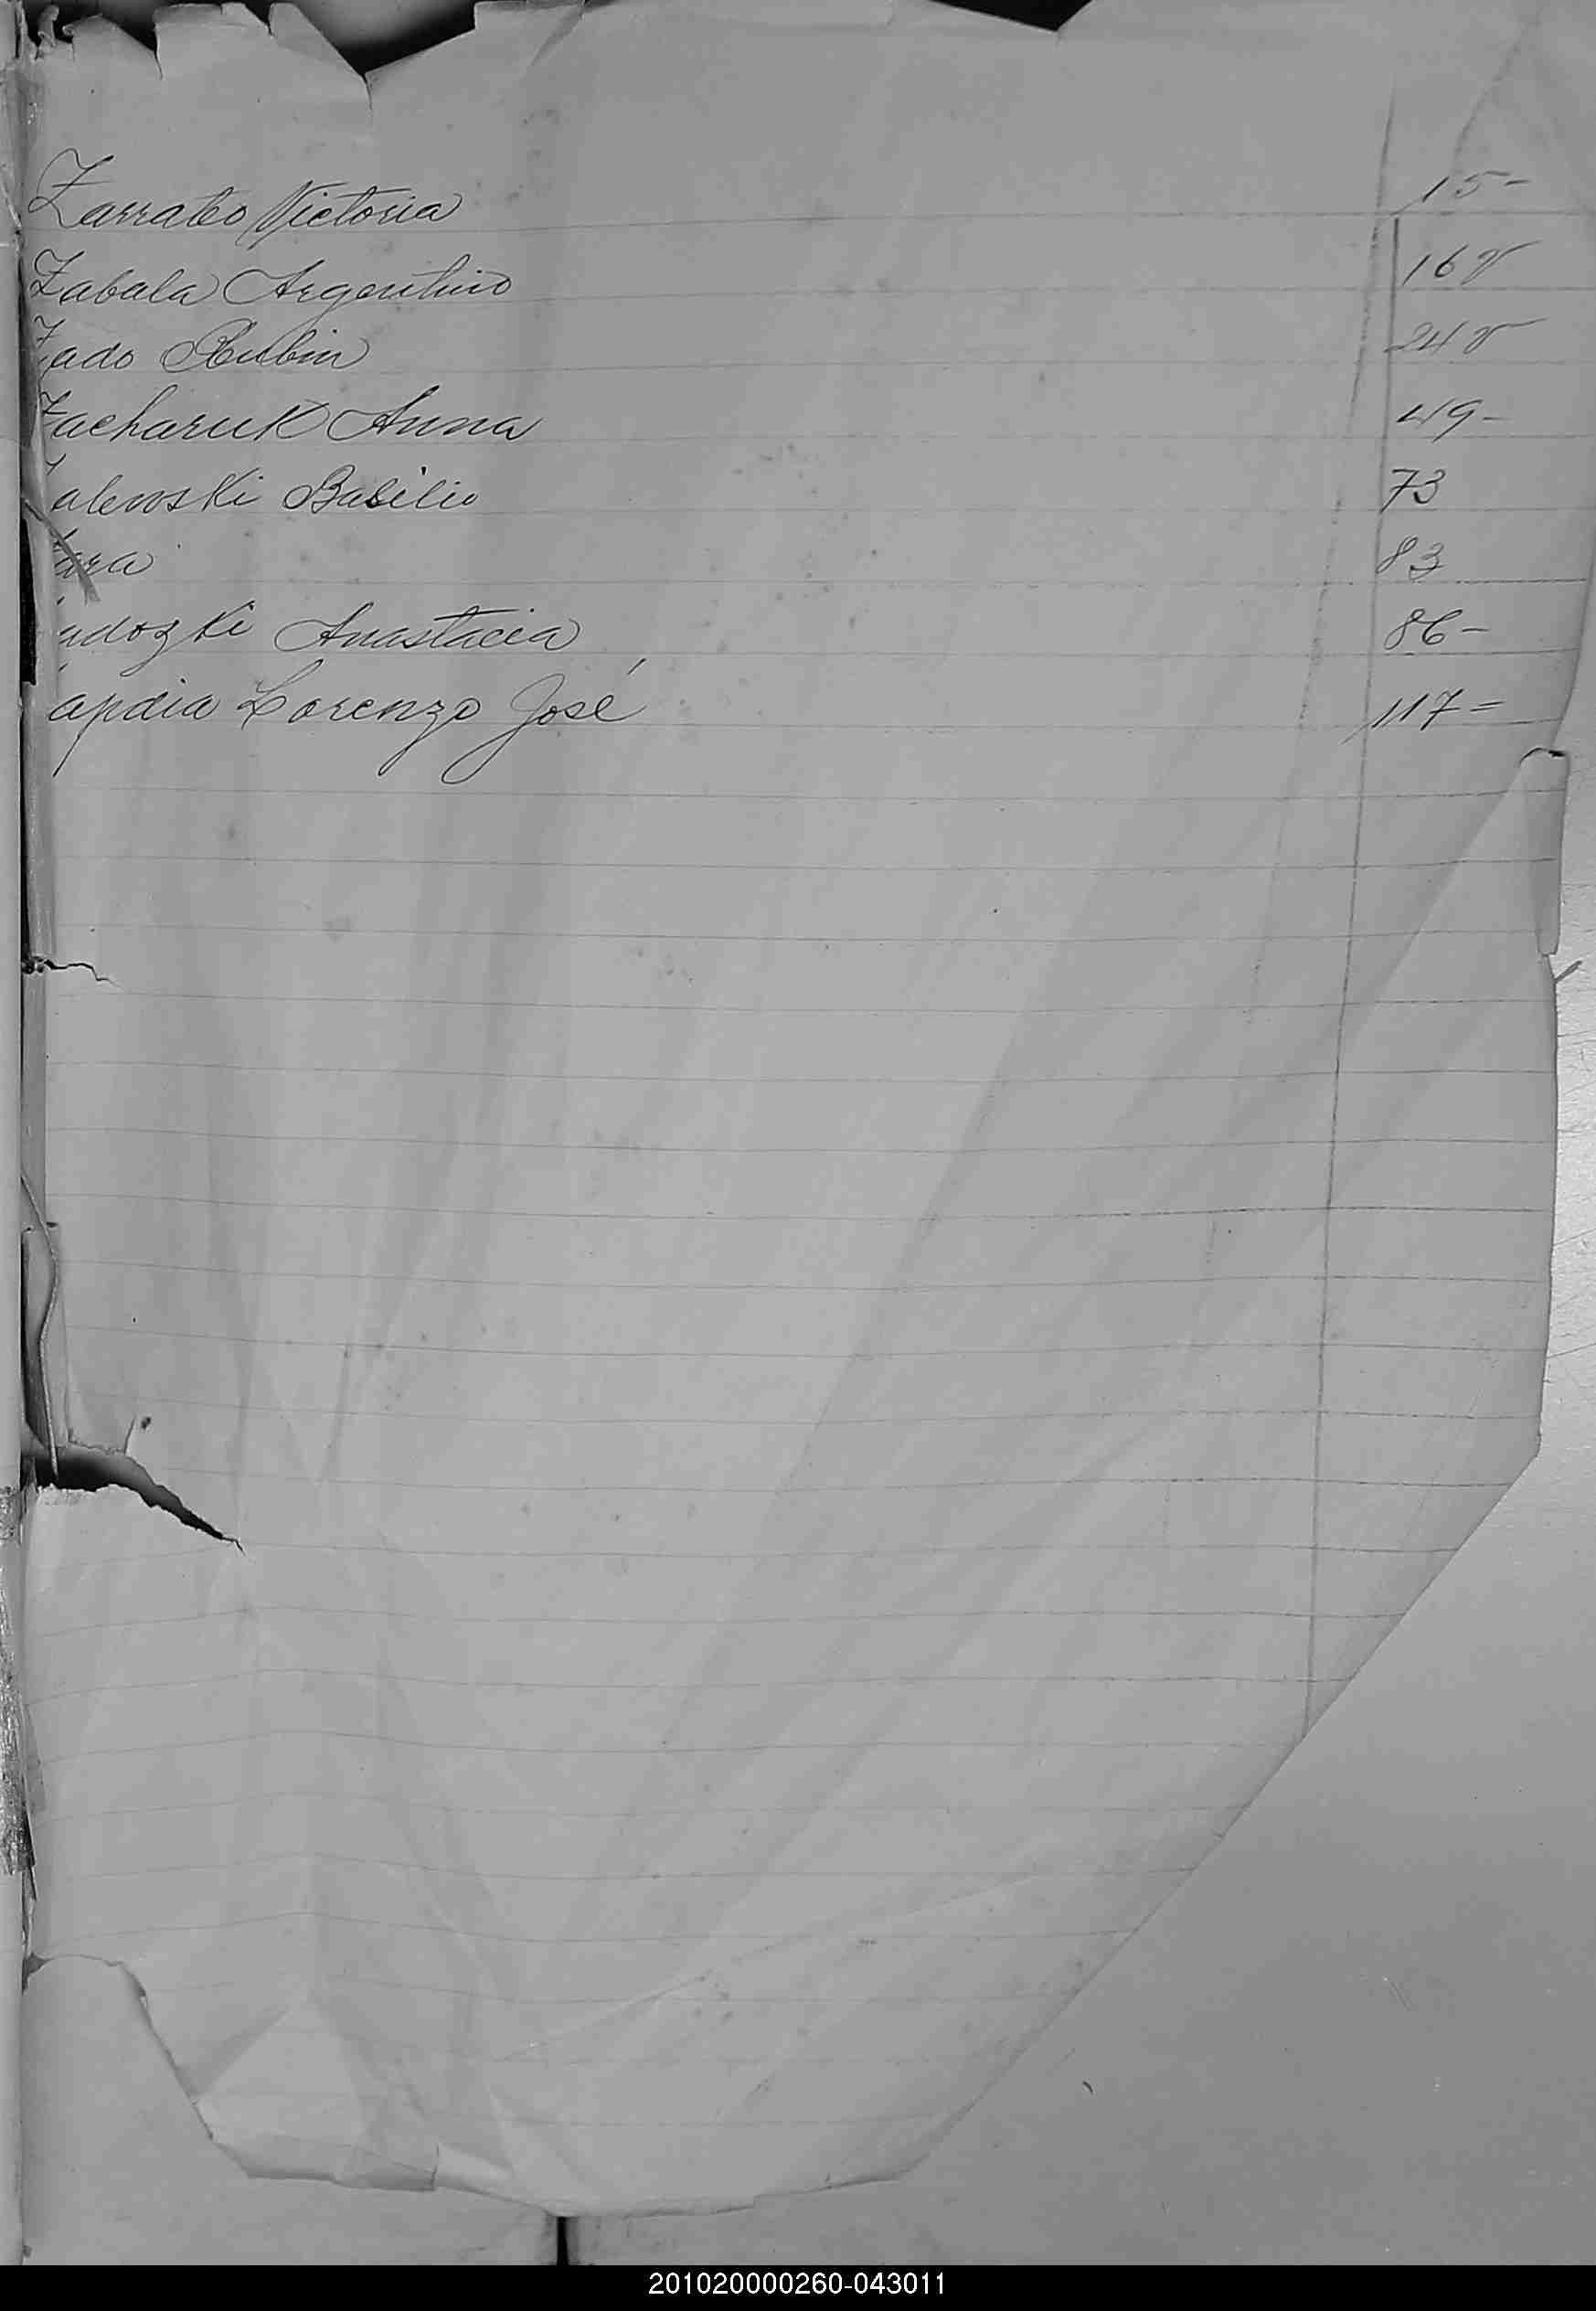 Zarrateo Victoria 15-
Zabala Argentino 16 v
Zado Rubin 24 v
Zacharuk Anna 49-
alewski Basilio 73
ara 83
adozki Anastacia 86-
apdia Lorenzo José 117=
201020000260-043011